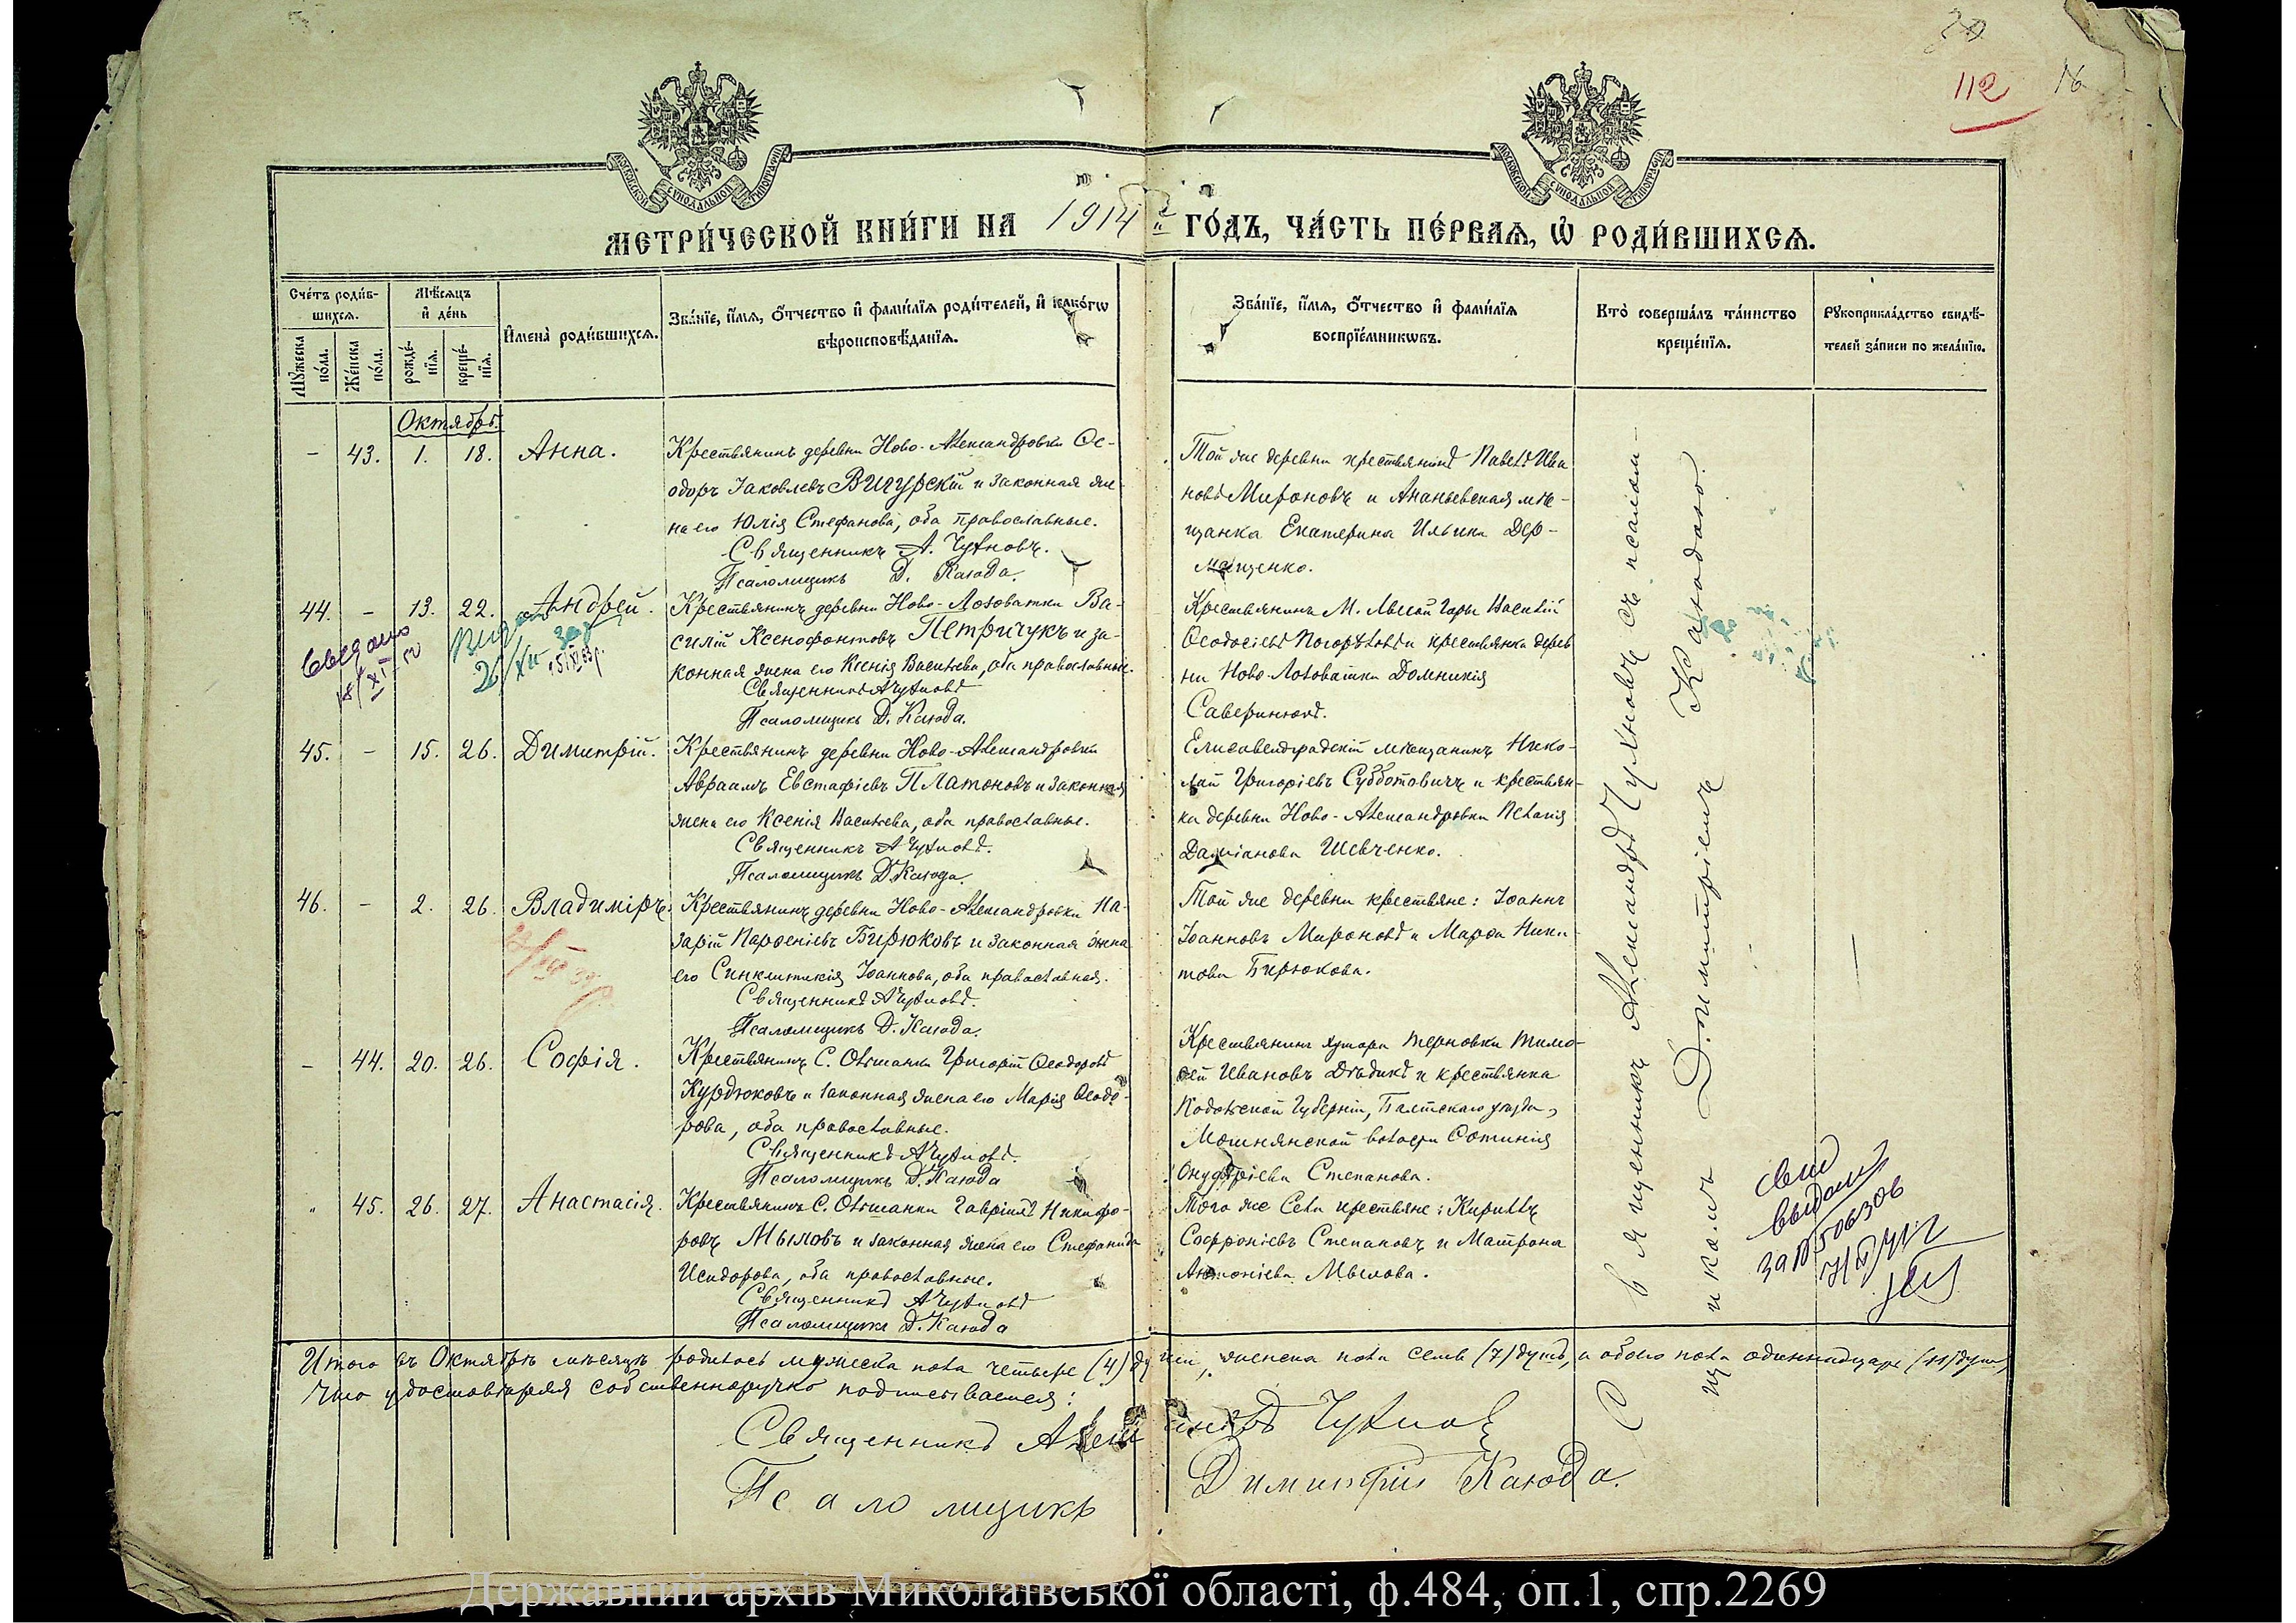 20
112
16
МОСКОВСКОЙ СУНОДАЛЬНОЙ ТИПОГРАФІИ
МОСКОВСКОЙ СУНОДАЛЬНОЙ ТИПОГРАФІИ
МЕТРИ́ЧЕСКОЙ КНИ́ГИ НА 1914 й ГО́ДЪ, ЧА́СТЬ ПЕ́РВАѦ, Ѡ҆ РОДИ́ВШИХСѦ.
Сче́тъ роди́в-
шихсѧ.
Мѣ́сѧцъ
и҆ де́нь
Мꙋ́жеска
по́ла.
Же́нска
по́ла.
рожде́-
нїѧ.
креще́-
нїѧ.
И҆мена̀ роди́вшихсѧ.
Зва́нїе, и҆́мѧ, ѻ҆́тчество и҆ фами́лїѧ роди́телей, и҆ како́гѡ
вѣроисповѣ́данїѧ.
Зва́нїе, и҆́мѧ, ѻ҆́тчество и҆ фами́лїѧ
воспрїе́мникѡвъ.
Кто̀ соверша́лъ та́инство
креще́нїѧ.
Рꙋкоприкла́дство свидѣ́-
телей за́писи по жела́нїю.
Октябрь.
- 43. 1. 18. Анна.
Крестьянинъ деревни Ново-Александровки Ѳе-
одоръ Іаковлевъ Вигурскій и законная же-
на его Юлія Стефанова, оба православные.
Священникъ А. Чухновъ.
Псаломщикъ Д. Каюда.
Той же деревни крестьянинъ Павелъ Ива
новъ Мироновъ и Ананьевская мѣ-
щанка Екатерина Ильина Дер-
менценко.
44. - 13. 22. Андрей.
Крестьянинъ деревни Ново-Лозоватки Ва-
силій Ксенофонтовъ Петричукъ и за-
конная жена его Ксенія Васильева, оба православные.
Священникъ А Чухновъ
Псаломщикъ Д. Каюда.
Крестьянинъ М. Лысой Горы Василій
Ѳеодосіевъ Погорѣловъ и крестьянка дерев
ни Ново-Лозоватки Домникія
Саверинюкъ.
45. - 15. 26. Димитрій.
Крестьянинъ деревни Ново-Александровки
Авраамъ Евстафіевъ Платоновъ и законная
жена его Ксенія Васильева, оба православные.
Священникъ А Чухновъ.
Псаломщикъ Д. Каюда.
Елисаветградскій мѣщанинъ Нико-
лай Григоріевъ Субботовичъ и крестьян-
ка деревни Ново-Александровки Пелагія
Даміанова Шевченко.
46. - 2. 26. Владиміръ.
Крестьянинъ деревни Ново-Александровки На-
зарій Парѳеніевъ Бирюковъ и законная жена
его Синклитикія Іоаннова, оба православная.
Священникъ А Чухновъ.
Псаломщикъ Д. Каюда.
Той же деревни крестьяне: Іоаннъ
Іоанновъ Мироновъ и Марѳа Ники-
това Бирюкова.
- 44. 20. 26. Софія.
Крестьянинъ С. Ольшанки Григорій Ѳеодоровъ
Курдюковъ и законная жена его Марія Ѳеодо-
рова, оба православные.
Священникъ А Чухновъ.
Псаломщикъ Д. Каюда
Крестьянинъ хутора Терновки Тимо-
ѳей Ивановъ Дѣдикъ и крестьянка
Подольской Губерніи, Балтскаго уѣзда,
Мошнянской волости Сотинія
Онуфріева Степанова.
" 45. 26. 27. Анастасія.
Крестьянинъ С. Ольшанки Гавріилъ Никифо-
ровъ Мыловъ и законная жена его Стефанида
Исидорова, оба православные.
Священникъ А Чухновъ
Псаломщикъ Д. Каюда
Того же села крестьяне: Кириллъ
Софроніевъ Степановъ и Матрона
Антоніева Мылова.
Священникъ Александръ Чухновъ съ псалом-
щикомъ Димитріемъ Каюдою.
свид
выдано
Итого въ Октябрѣ мѣсяцѣ родилось мужеска пола четыре (4) души, женска пола семь (7) душъ, а обоего пола одиннадцать (11) душъ,
Что удостовѣряя собственноручно подписываемся:
Священникъ Александръ Чухновъ
Псаломщикъ Димитрій Каюда.
Державний архів Миколаївської області, ф.484, оп.1, спр.2269